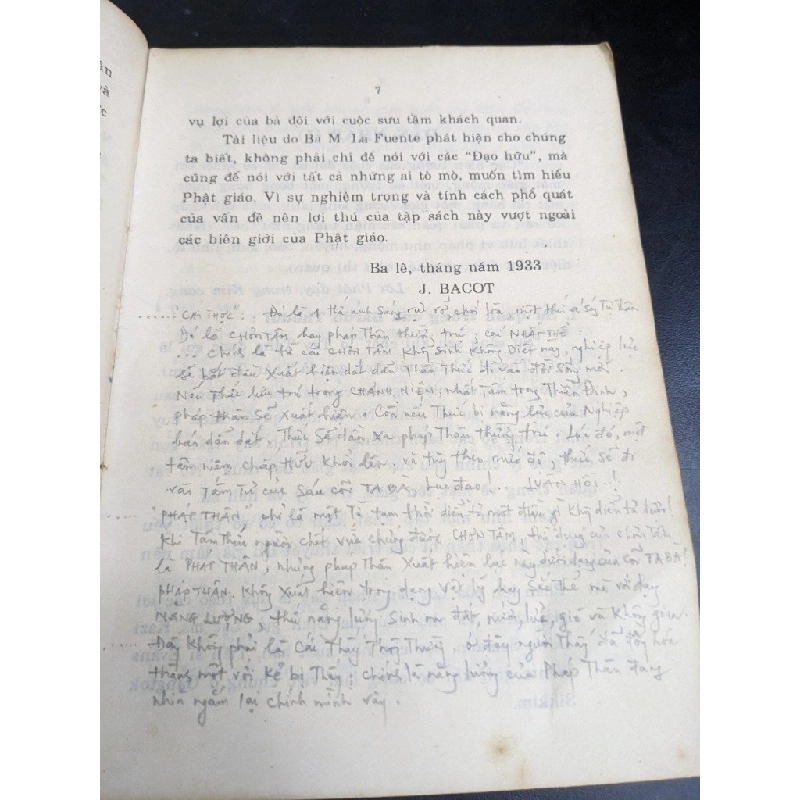 7
vụ lợi của bà đối với cuộc sưu tầm khách quan.
Tài liệu do Bà M. La Fuente phát hiện cho chúng
ta biết, không phải chỉ để nói với các “Đạo hữu”, mà
cũng để nói với tất cả những ai tò mò, muốn tìm hiểu
Phật giáo. Vì sự nghiêm trọng và tính cách phổ quát
của vấn đề nên lợi thú của tập sách này vượt ngoài
các biên giới của Phật giáo.
Ba lê, tháng năm 1933
J. BACOT
Đó là 1 thể ánh sáng rực rỡ, chói lòa, một thứ
Đó là CHƠN TÂM hay pháp Thân thường trú, cái NHẤT THỂ
Chính là từ cái CHƠN TÂM Không sinh Không Diệt này, nghiệp lực
sẽ bắt đầu xuất hiện dắt dẫn Thần Thức đi vào đời sống mới.
Nếu phải lưu trú trong CHÁNH NIỆM, nhất Tâm trong Thiền Định,
pháp thân sẽ xuất hiện. Còn nếu Thức bị năng lực của Nghiệp
báo dẫn dắt, Thức sẽ dần xa pháp Thân thường trú. Lúc đó, một
tâm niệm chấp HỮU khởi lên, và tùy theo mức độ, thức sẽ đi
vào Tâm Tử của Sáu cõi TA BÀ Lục đạo! LUÂN HỒI!
"PHÁP THÂN" chỉ là một Từ tạm thời diễn tả một điều gì Không diễn tả được!
Khi Tâm Thức người chết vừa chứng được CHƠN TÂM,
là PHÁP THÂN, nhưng pháp Thân xuất hiện lúc này dưới dạng của cõi TA BÀ!
PHÁP THÂN Không xuất hiện trong dạng Vật lý hay
NĂNG LƯỢNG, thứ năng lượng sinh ra đất, nước, lửa, gió và Không gian.
Đây không phải là Cái Thấy Thông Thường ở đây người Thấy đã đồng hóa
thành một với Kẻ bị Thấy; chính là năng lượng của Pháp Thân đang
nhìn ngắm lại chính mình vậy.